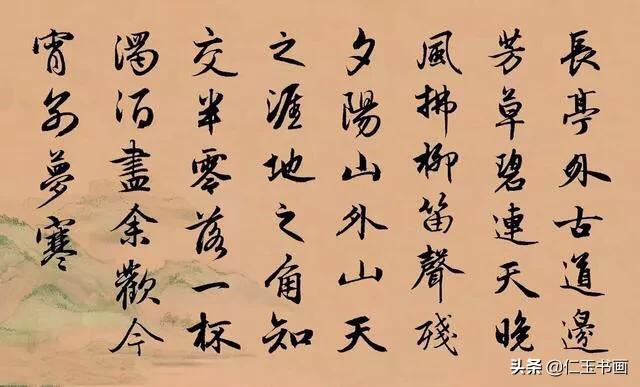 長亭外古道邊
芳草碧連天晚
風拂柳笛聲殘
夕陽山外山天
之涯地之角知
交半零落一杯
濁酒盡余歡今
宵別夢寒
头条 @仁玉书画